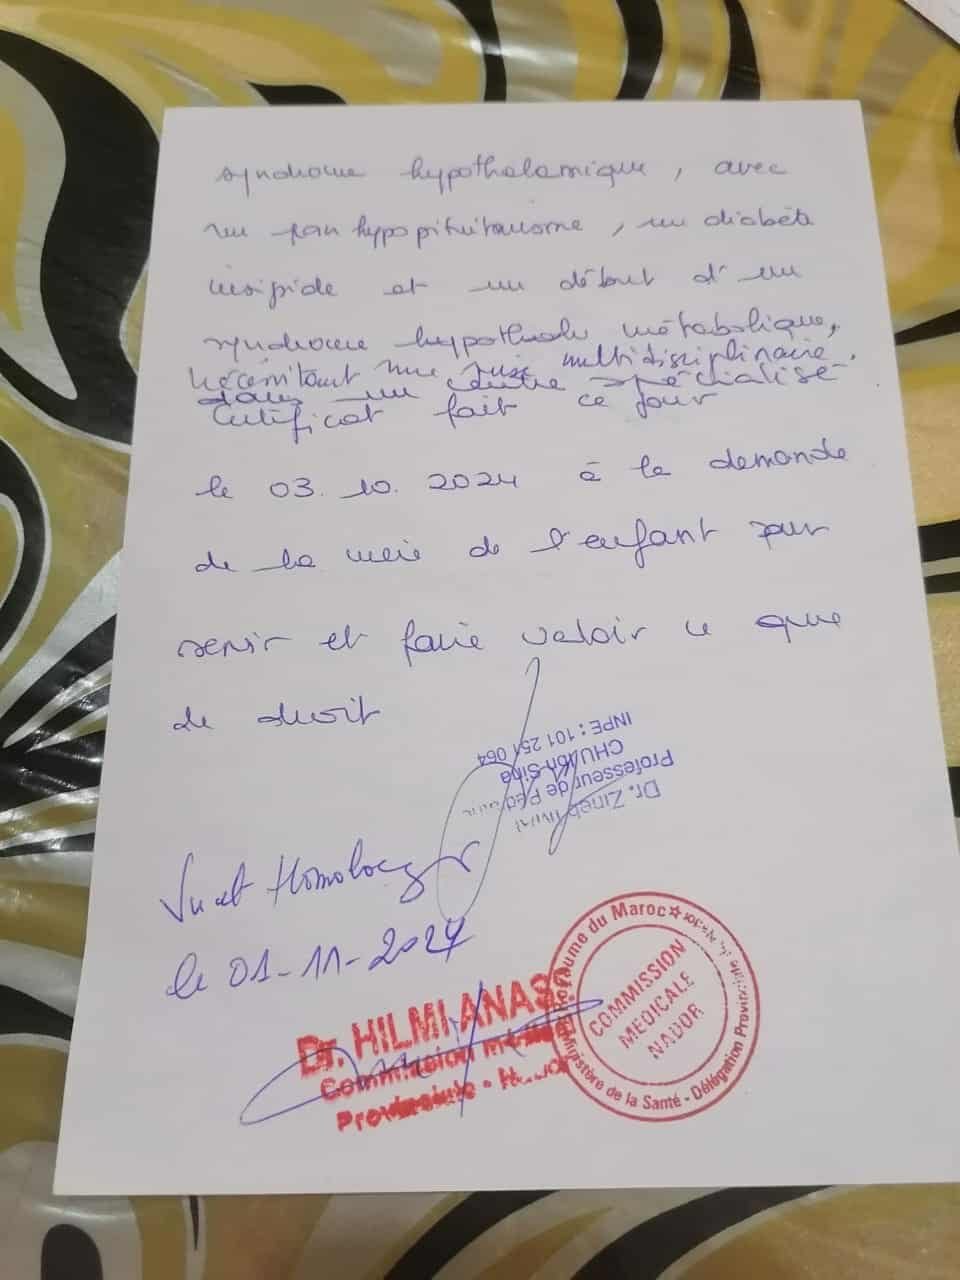 syndrome hypothalamique, avec
un panhypopituitarisme, un diabète
insipide et un début d'un
syndrome hypothal métabolique,
nécessitant une prise multidisciplinaire,
dans un centre spécialisé
Certificat fait ce jour
le 03.10.2024 à la demande
de la mère de l'enfant pour
servir et faire valoir ce que
de droit
Dr. Zineb
Professeur de
CHU Ibn Sina
INPE : 101 251 064
Vu et Homologué
le 01-11-2024
Dr. HILMI ANASS
Commission
Provinciale -
Royaume du Maroc
Ministère de la Santé - Délégation Provinciale
COMMISSION
MEDICALE
NADOR